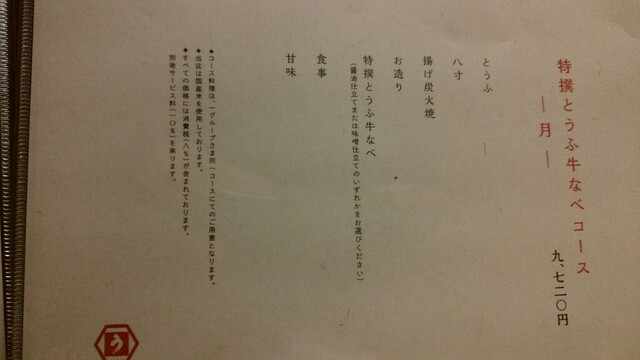 特撰とうふ牛なべコース
―月―
九、七二〇円
とうふ
八寸
揚げ炭火焼
お造り
特撰とうふ牛なべ
(醤油仕立てまたは味噌仕立てのいずれかをお選びください)
食事
甘味
◆コース料理は、一グループさま同一コースにてのご用意となります。
◆当店は国産米を使用しております。
◆すべての価格には消費税(八%)が含まれております。
別途サービス料(一〇%)を承ります。
う